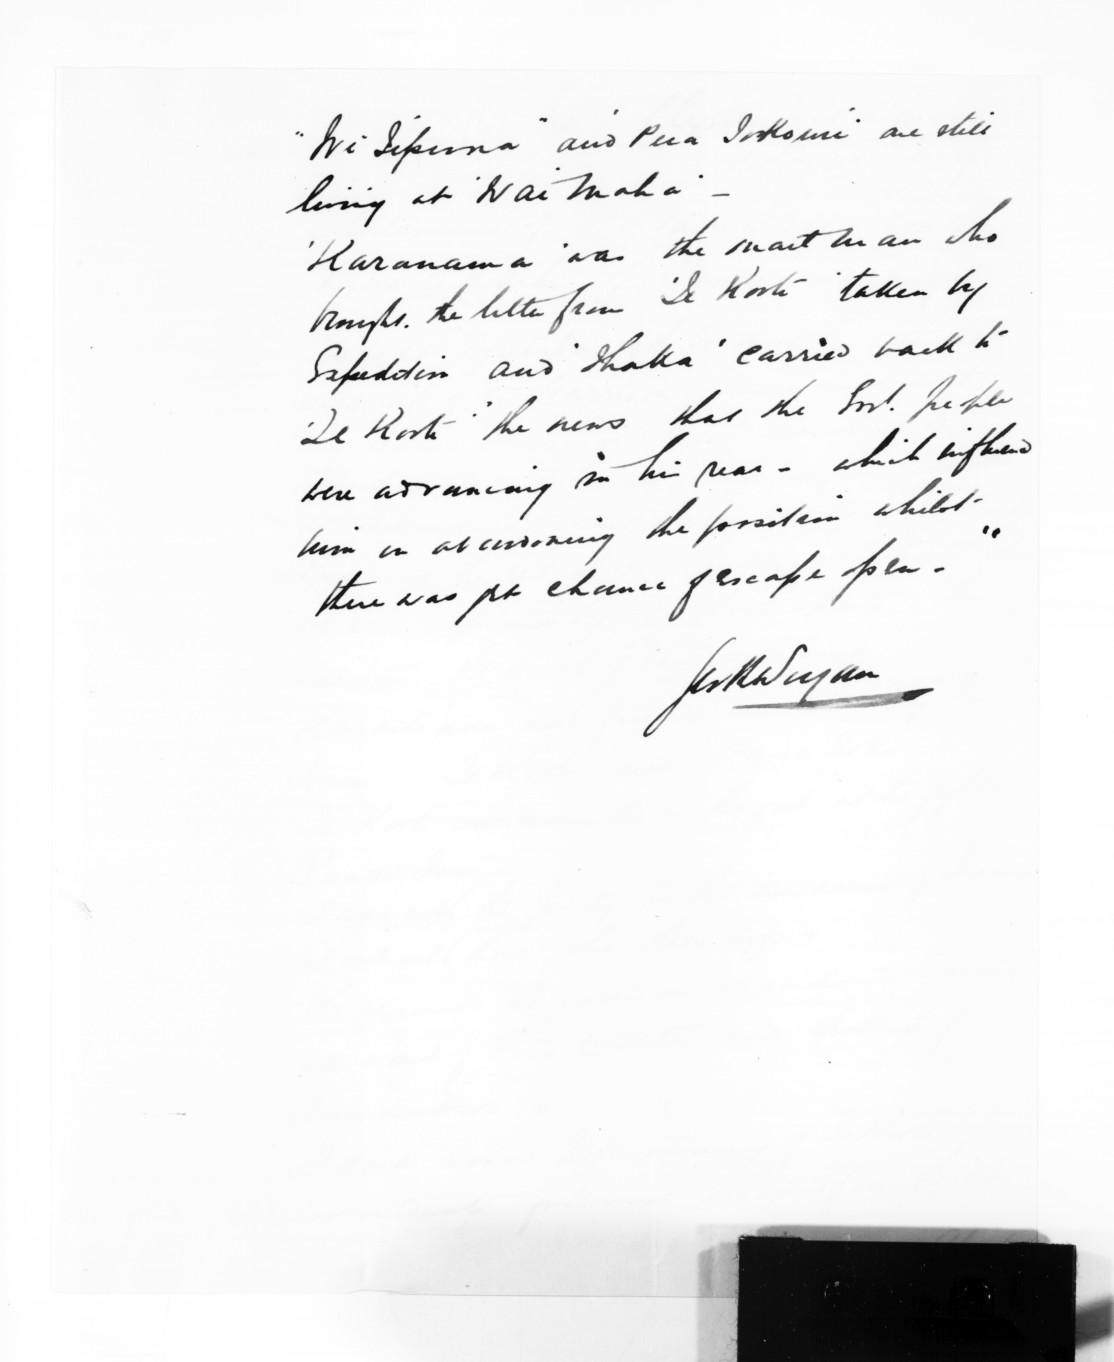 "Wi Tipuna" and Pera Tutkowi are still
living at 'Wai Maha' -
'Karanama' was the smart man who
brought. the letter from 'Te Kooti' taken by
Expedition and 'Ihaka' carried back to
'Te Kooti' the news that the Govt. people
were advancing in his rear - which influenced
him in abandoning the position whilst
there was yet chance of escape open - "